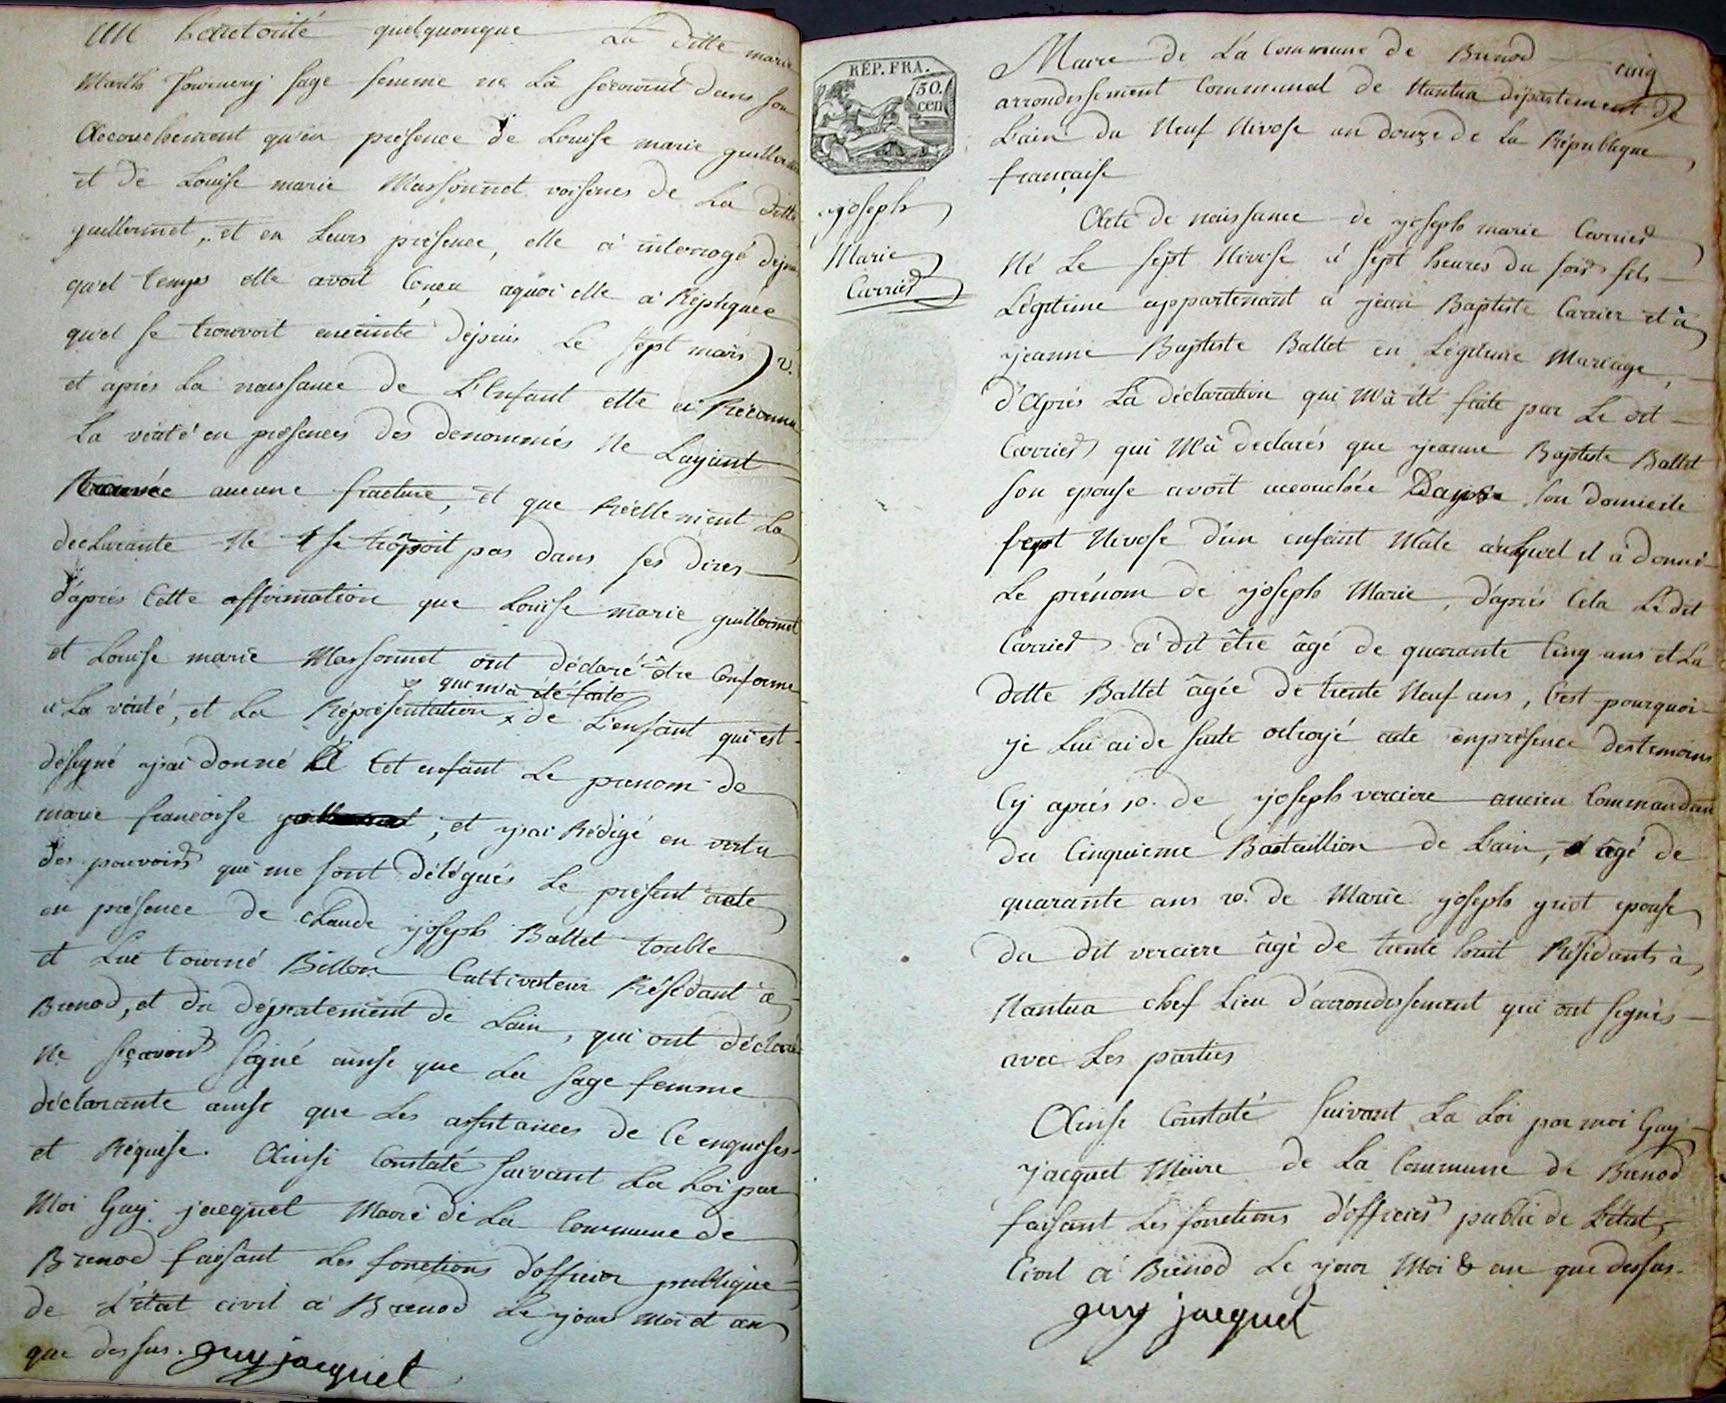 quelquonque La ditte marie
Marthe sage femme ne Là secourut dans son
Accouchement qu'en présence de Louise marie guillermet
et de Louise marie Massonnet voisines de La ditte
guillermet, et en Leurs présence, elle à interrogé depuis
quel temps elle avoit Conçu aquoi elle à Répliquée
quel se trouvoit enceinte depuis Le sept mars v.
et après La naissance de L'Enfant elle à Reconnu
La vérité en présences des denommés Ne Layant
aucune fracture, et que Réellement La
déclarante Ne se trompoit pas dans ses dires
d'après Cette affirmation que Louise marie guillermet
et Louise marie Massonnet ont déclaré être Conforme
qui m'a été faite
à La vérité, et La Représentation x de L'enfant qui est
désigné j'ai donné à Cet enfant Le prenom de
marie francoise ; et j'ai Rédigé en vertu
des pouvoirs qui me sont délégués Le présent acte
en présence de claude joseph Ballet touble
et Luc tourné Billon Cultivateur Résidant à
Brenod, et du département de Lain, qui ont déclaré
Ne sçavoir signé ainsi que La sage femme
déclarante ainsi que Les assistances de Ce enquises
et Réquise. Ainsi Constaté suivant La Loi par
Moi Guy jacquet Maire de La Commune de
Brenod faisant Les fonctions d'officier publique
de L'état civil à Brenod Le jour Moi et an
que dessus. guy jacquet
cinq
RÉP. FRA.
50.
cen
joseph
Marie
Carrier
Maire de La Commune de Brenod
arrondissement Communal de Nantua département de
L'ain du Neuf Nivose an douze de La République
française
Acte de naissance de joseph marie Carrier
Né Le sept Nivose à sept heures du soir fils
Légitime appartenant à jean Baptiste Carrier et à
jeanne Baptiste Ballet en Légitime Mariage,
d'Après Là déclaration qui M'à été faite par Le dit
Carrier qui M'à declarés que jeanne Baptiste Ballet
son epouse avoit accouchée Dans son domicile
sept Nivose d'un enfant Mâle auquel il à donné
Le prénom de joseph Marie, d'après Cela Le dit
Carrier à dit être âgé de quarante Cinq ans et La
ditte Ballet âgée de trente Neuf ans, C'est pourquoi
je Lui ai de suite octroyé acte en présence des temoins
Cy après 1o. de joseph verciere ancien Commandant
du Cinquieme Bastaillion de Lain, âgé de
quarante ans 2o. de Marie joseph griot epouse
du dit verciere âgé de trente huit Résidants à
Nantua chef Lieu d'arrondissement qui ont signés
avec Les parties
Ainsi Constaté suivant La Loi par moi Guy
jacquet Maire de La Commune de Brenod
faisant Les fonctions d'officier public de L'état
Civil à Brenod Le jour Moi & an que dessus.
guy jacquet